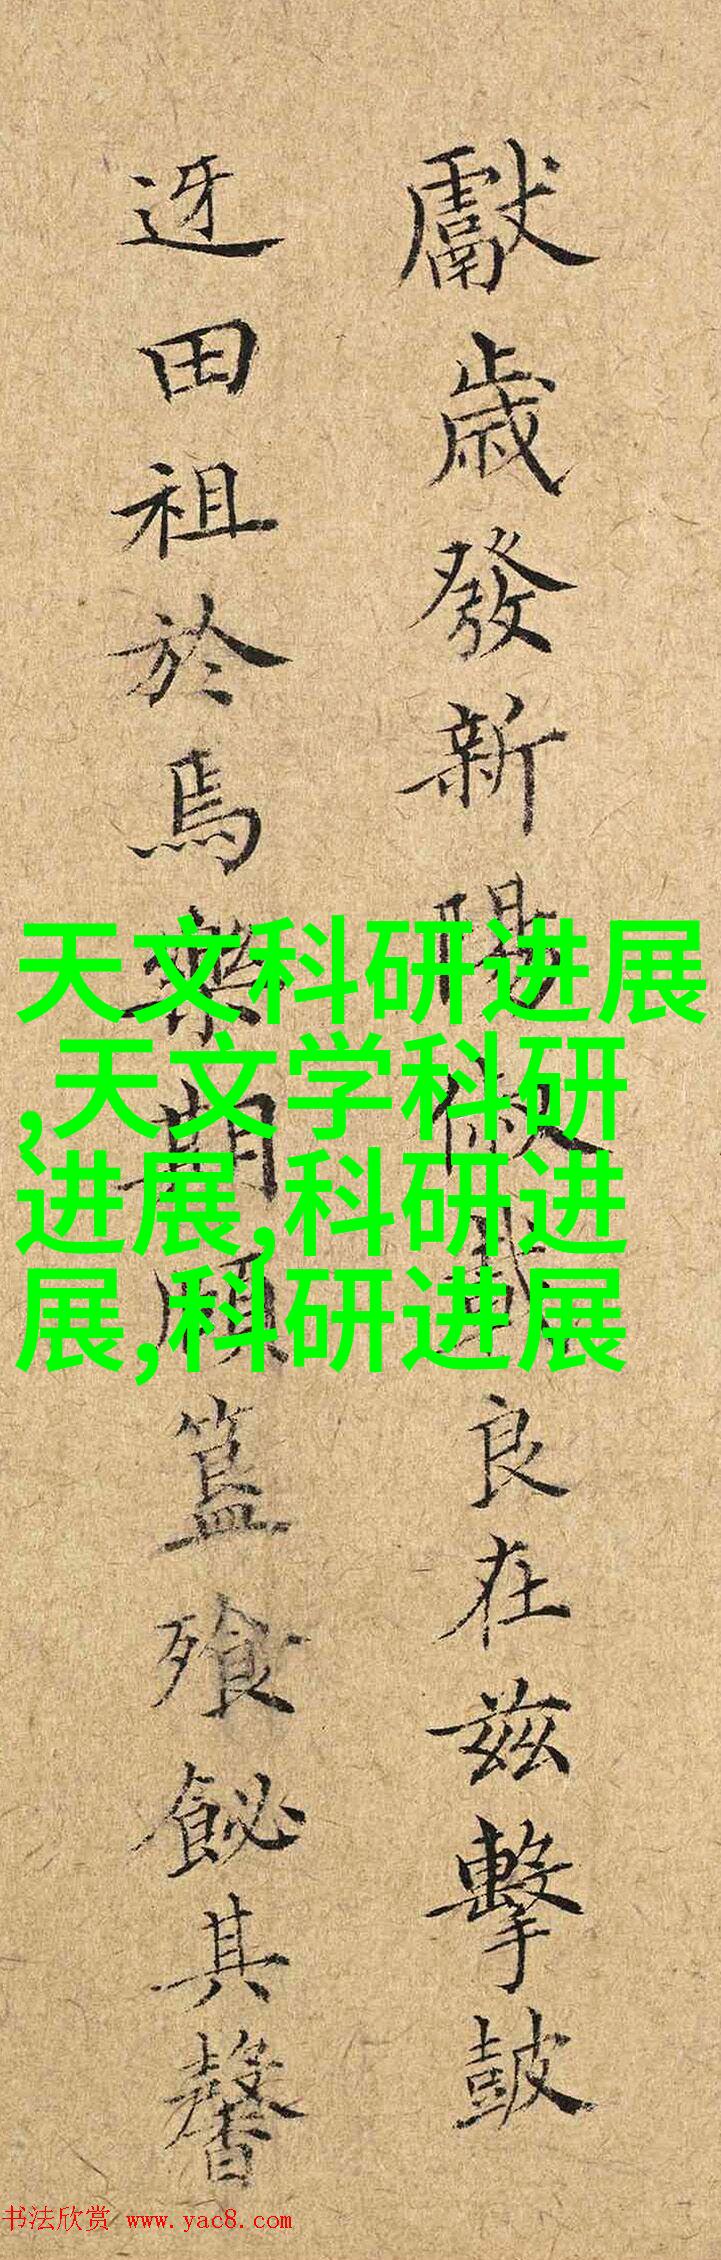 獻歲發新陽俶載良在茲擊鼓
迓田祖於焉樂期簋飱飶其馨
天文科研进展
,天文学科研
进展,科研进
展,科研进展
书法欣赏 www.yac8.com